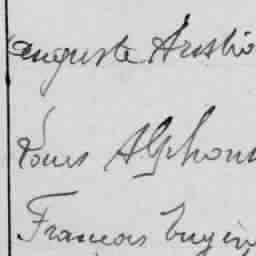 Auguste Aristi
Louis Alphons
Francois Eugèn